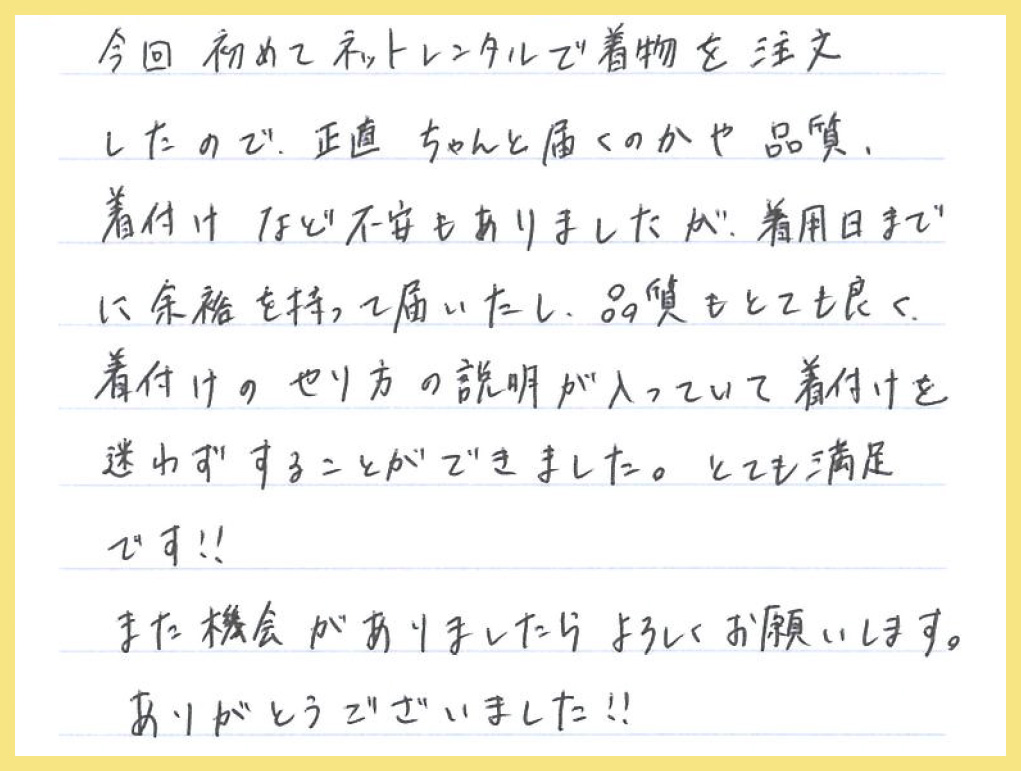 今回 初めてネットレンタルで着物を注文
したので、正直 ちゃんと届くのかや 品質、
着付け など不安もありましたが、着用日まで
に余裕を持って届いたし、品質もとても良く、
着付けの やり方の説明が入っていて着付けを
迷わずすることができました。とても満足
です!!
また機会がありましたらよろしくお願いします。
ありがとうございました!!